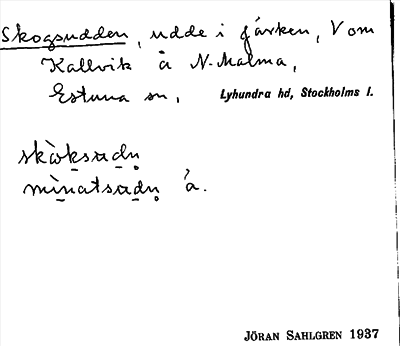 Skogsudden, udde i fjärden, V om
Kallvik å N. Malma,
Estuna sn, Lyhundra hd, Stockholms l.
skòksudn̥
mìnatsudn̥ á.
JÖRAN SAHLGREN 1937